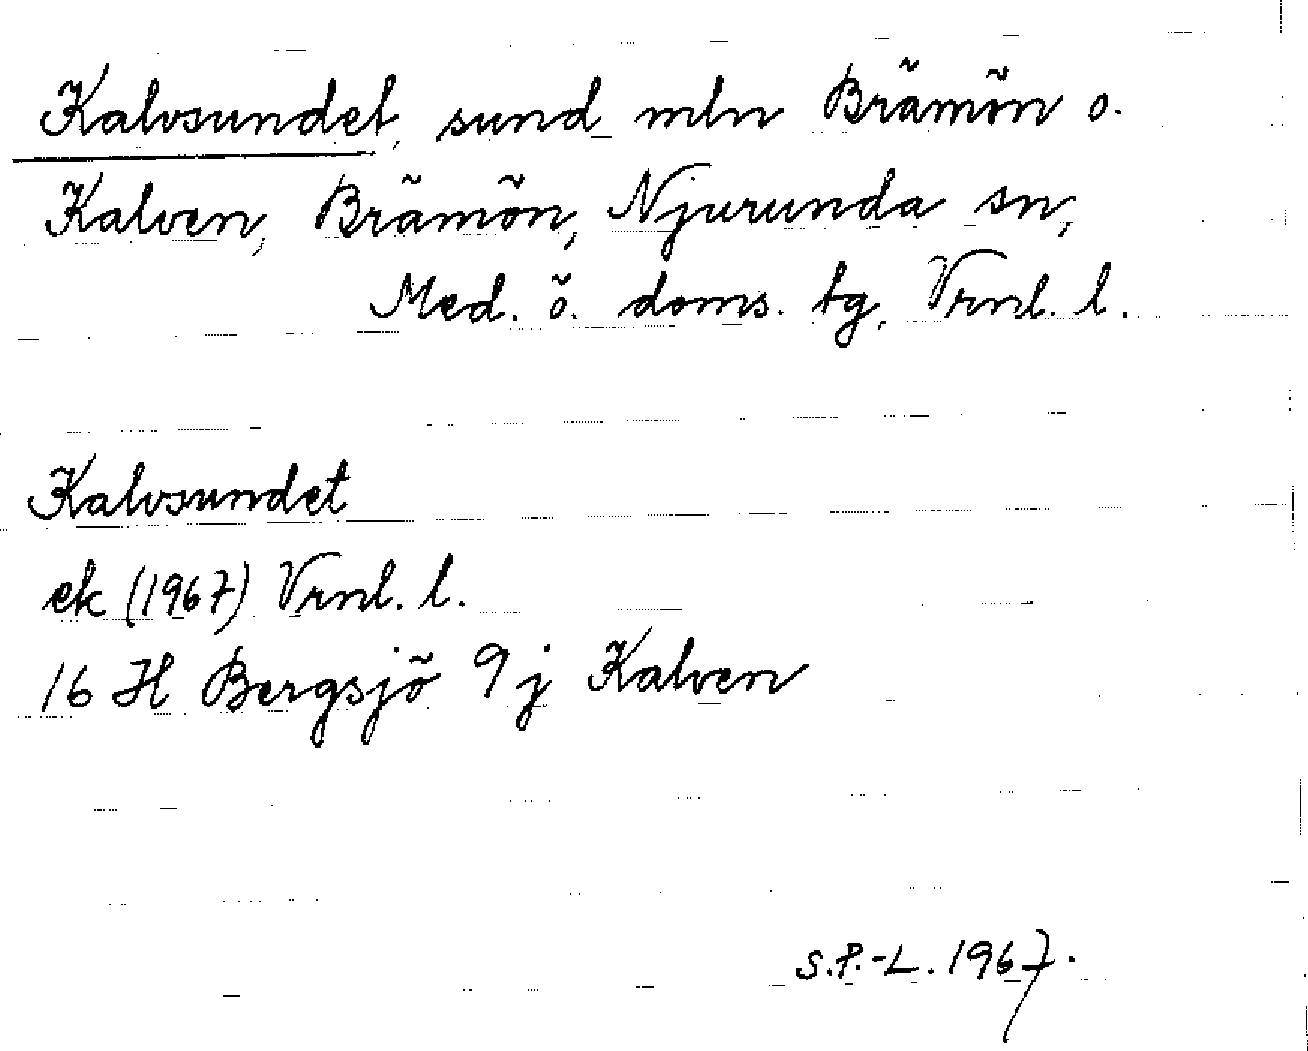 Kalvsundet, sund mln Brämön o.
Kalven, Brämön, Njurunda sn,
Med. ö. doms. tg, Vrnl. l.
Kalvsundet
ek (1967) Vrnl. l.
16 H Bergsjö 9 j Kalven
S.P.-L. 1967.